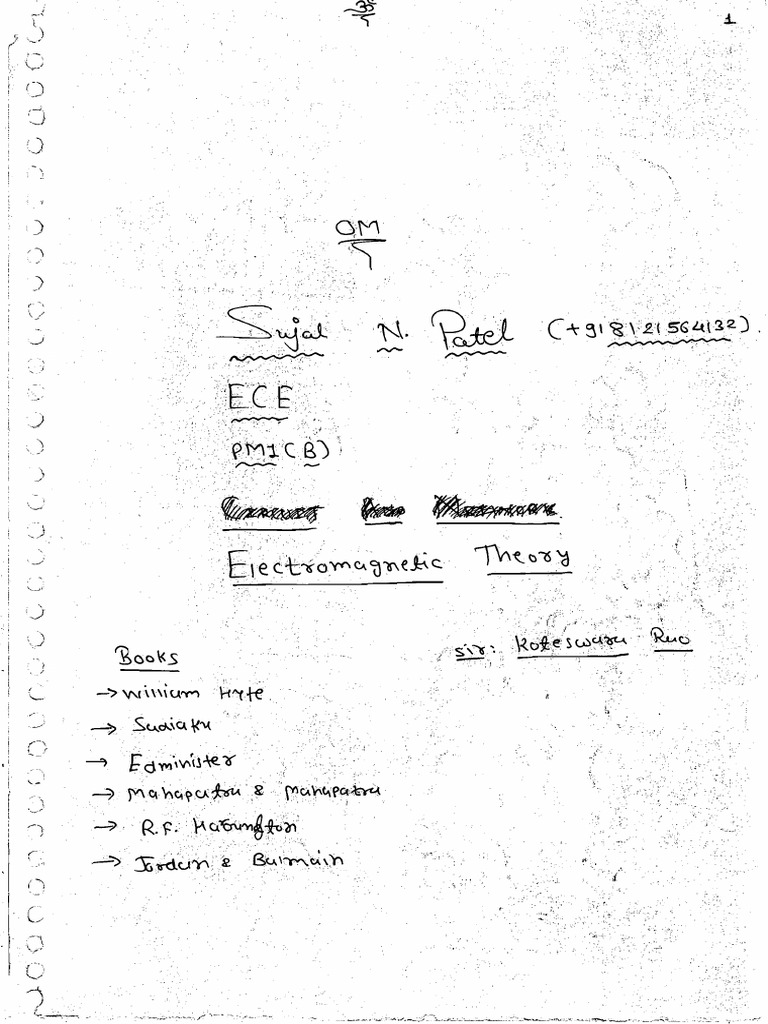 1
OM
Sujal N. Patel (+918121564132).
ECE
PM1(B)
Electromagnetic Theory
sir: Koteswara Rao
Books
→ William Hyte
→ Sadiaku
→ Edminister
→ Mahapatra & Mahapatra
→ R.F. Harrington
→ Jordan & Balmain